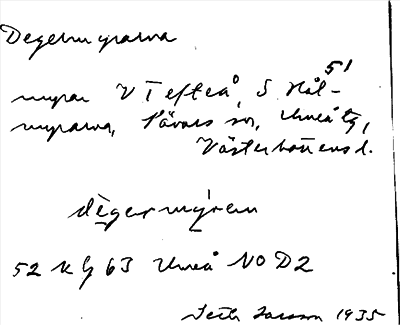 Degermyrarna
51
myrar V Tefteå, S Hål-
myrarna, Sävars sn, Umeå tg,
Västerbottens l.
dègermýren
52 Kg 63 Umeå NO D2
Seth Larsson 1935